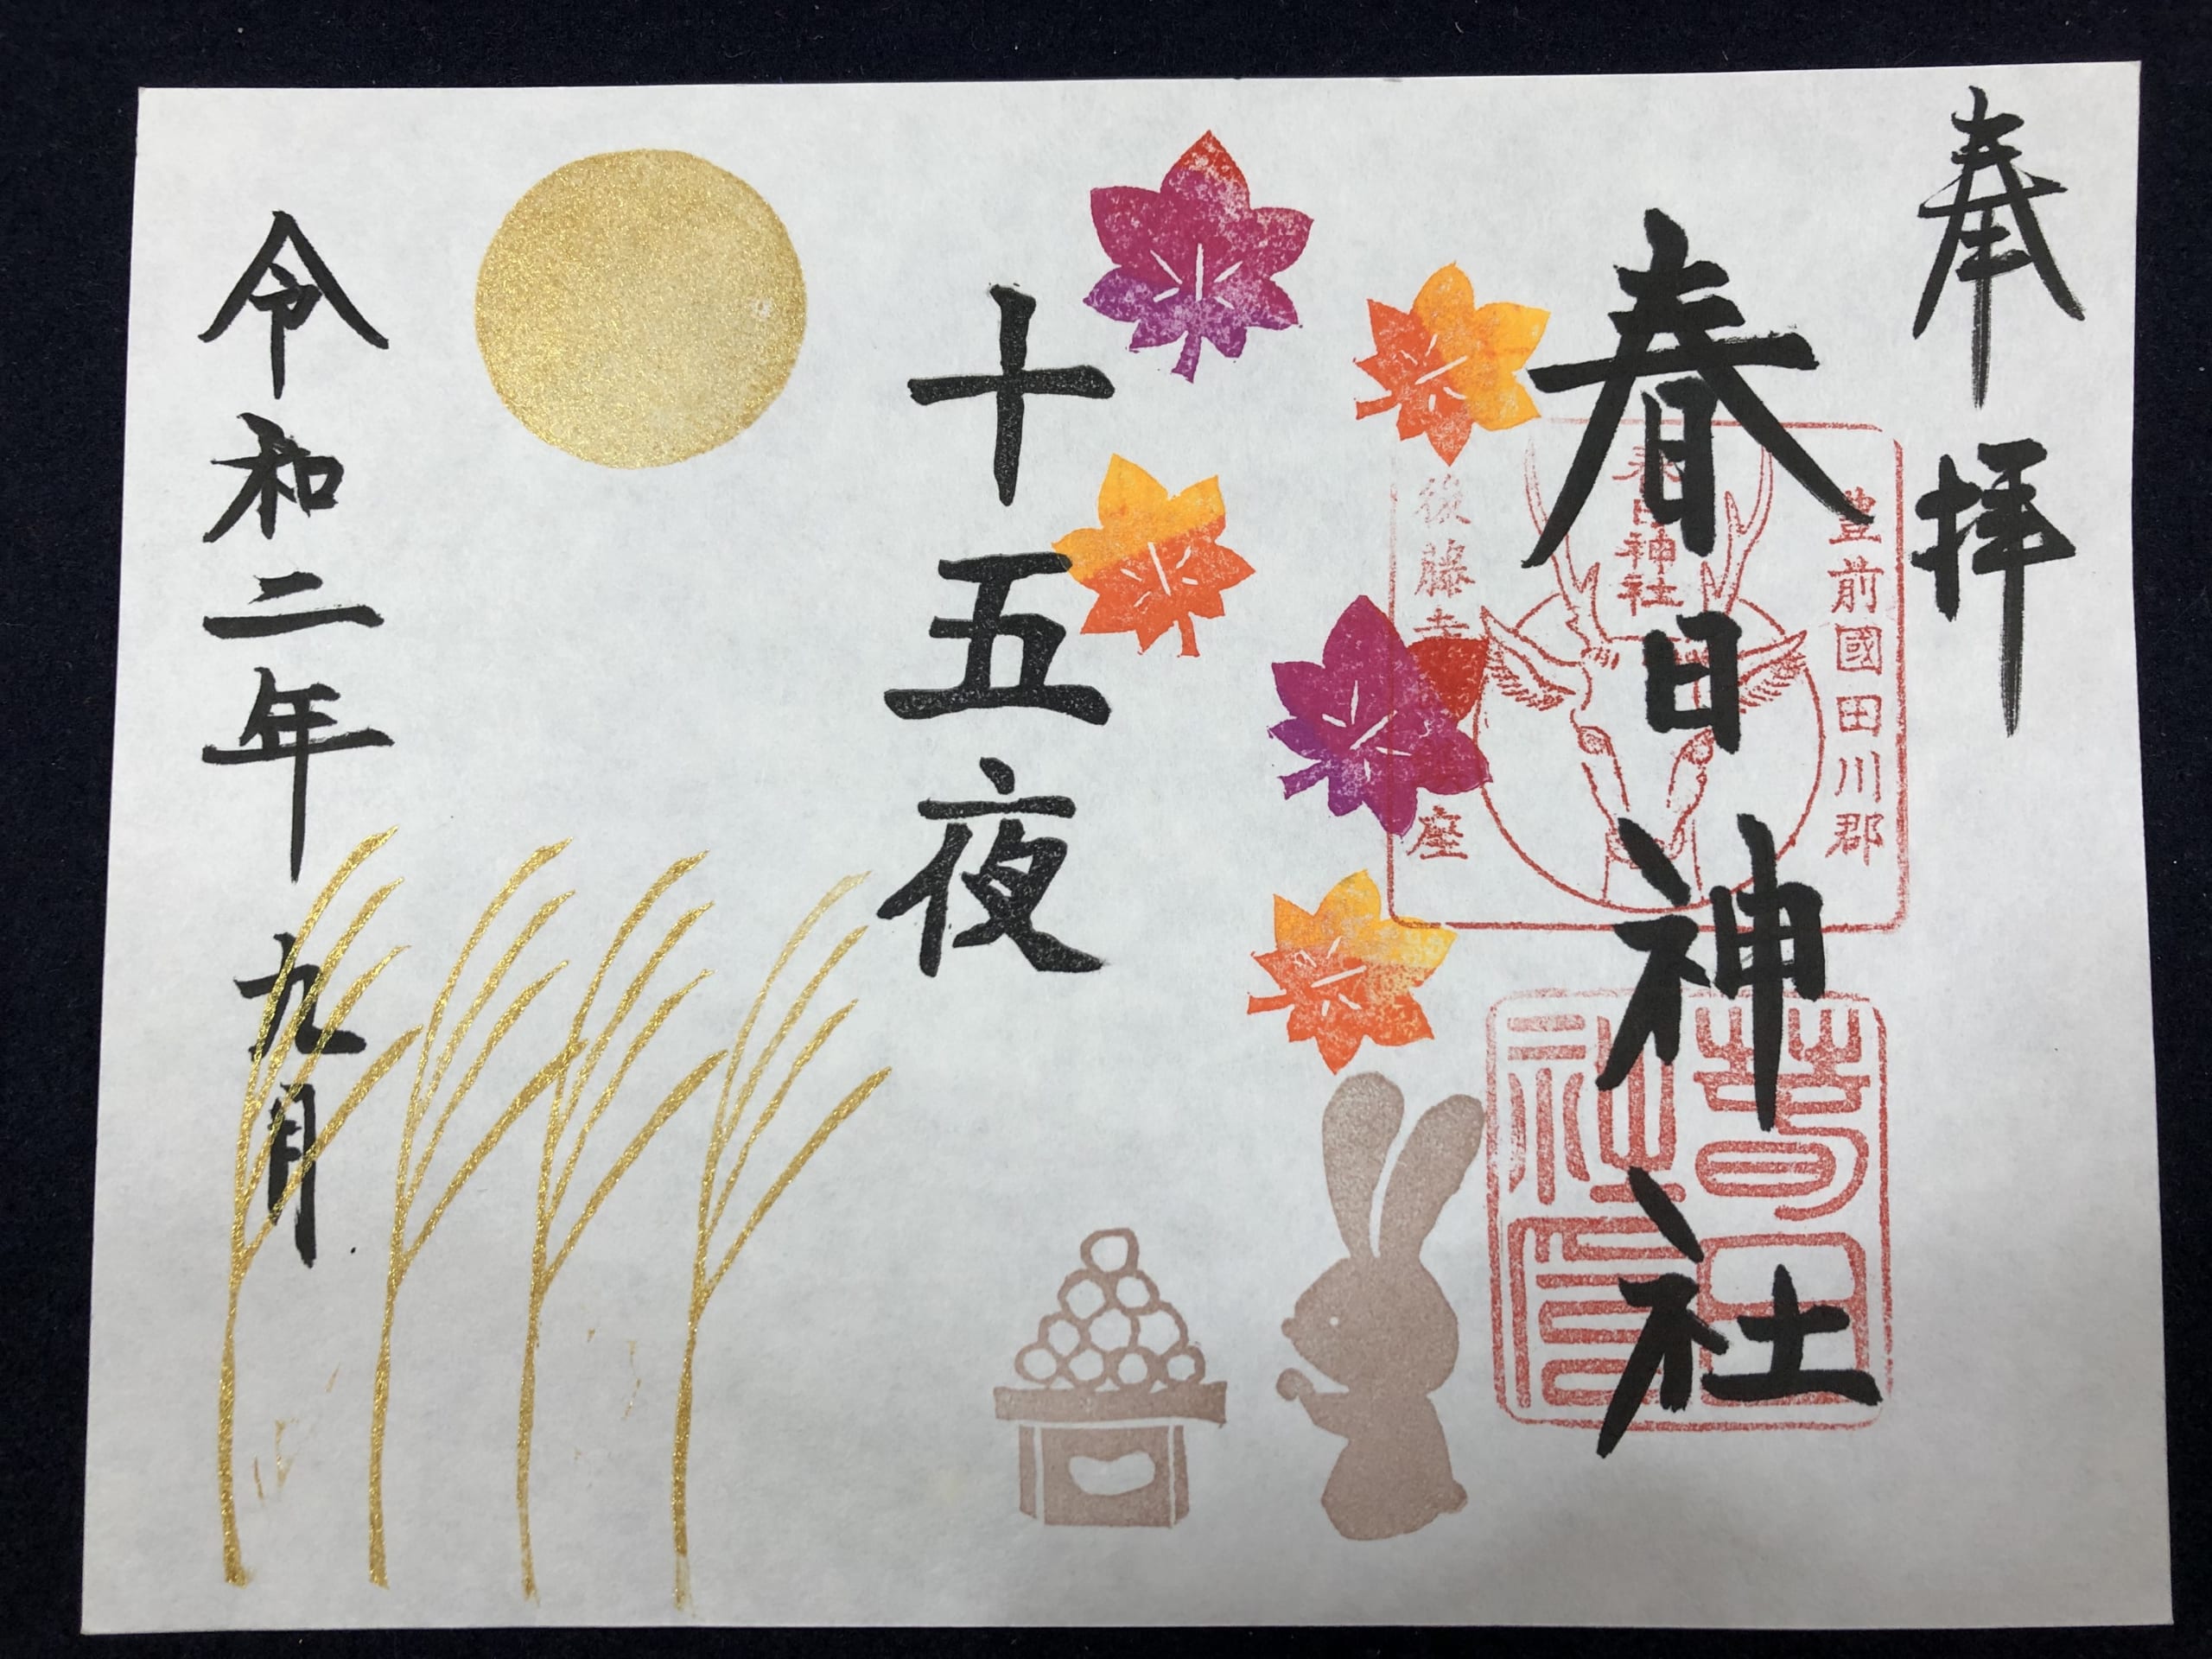 奉拝
春日神社
豊前國田川郡
春日神社
後藤寺座
十五夜
令和二年九月